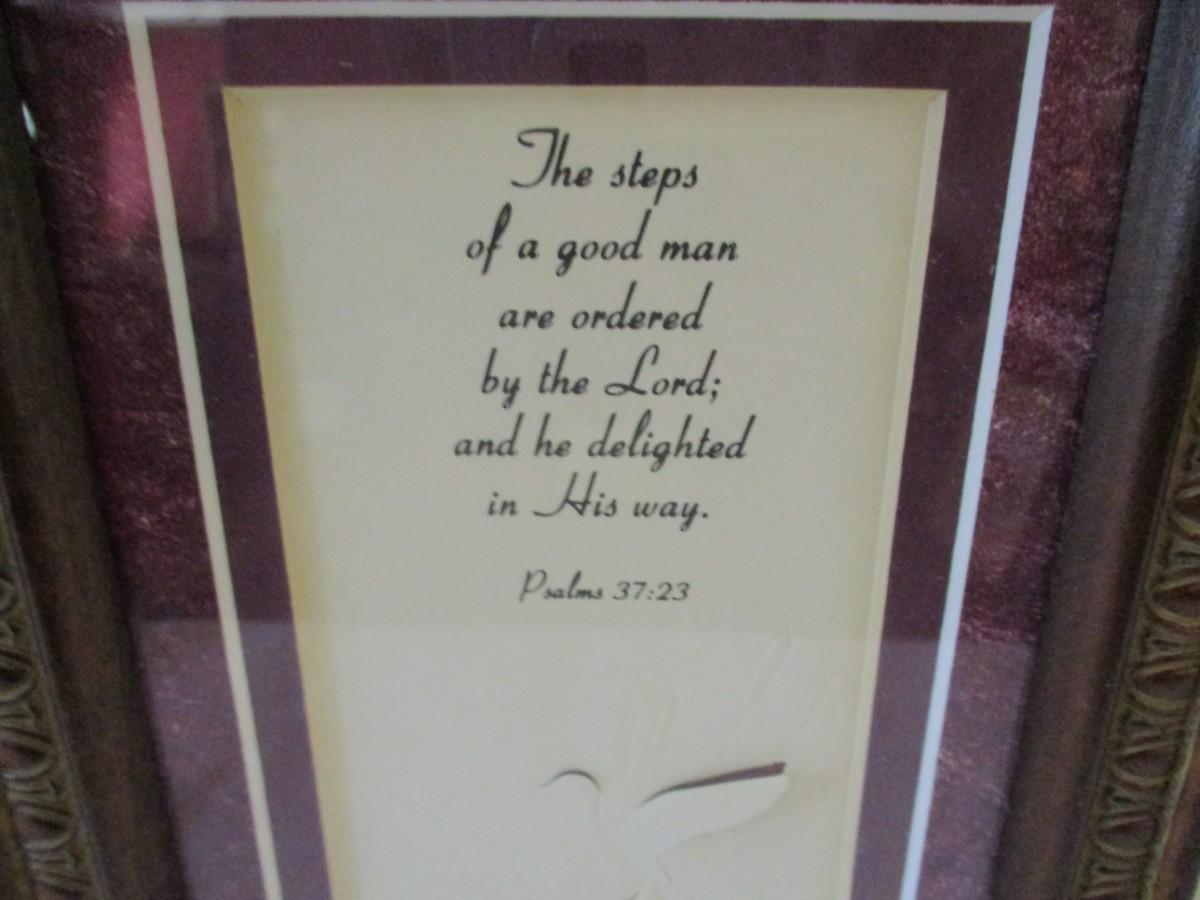 The steps
of a good man
are ordered
by the Lord;
and he delighted
in His way.
Psalms 37:23